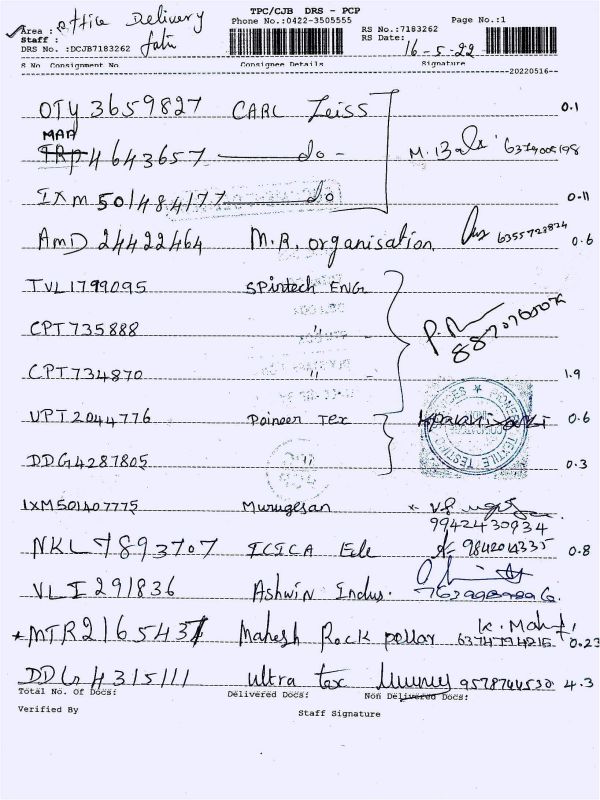 TPC/CJB DRS - PCP
Area : office Delivery
Phone No.:0422-3505555
RS No.:7183262
Page No.:1
Staff :
RS Date: 16-5-22
DRS No. :DCJB7183262
S No Consignment No Consignee Details Signature
20220516
OTY 3659827 CARL Zeiss 0.1
MAA 4643657 do - M. Bala
IXM 501484177 do 0.11
AMD 24422464 M.R. organisation 0.6
TVL1799095 SPintech ENG
CPT735888 "
CPT734870 " 1.9
UPT2044776 Poineer Tex 0.6
DDG4287805 0.3
IXM501407775 Murugesan
9942430934
NKL7893707 ICICA 9842014335 0.8
VLI 291836 Ashwin Indus.
*MTR2165437 Mahesh Rock pollar K. 0.23
DDG 4315111 Ultra tex 9578744530 4.3
Total No. Of Docs: Delivered Docs: Non Delivered Docs:
Verified By Staff Signature